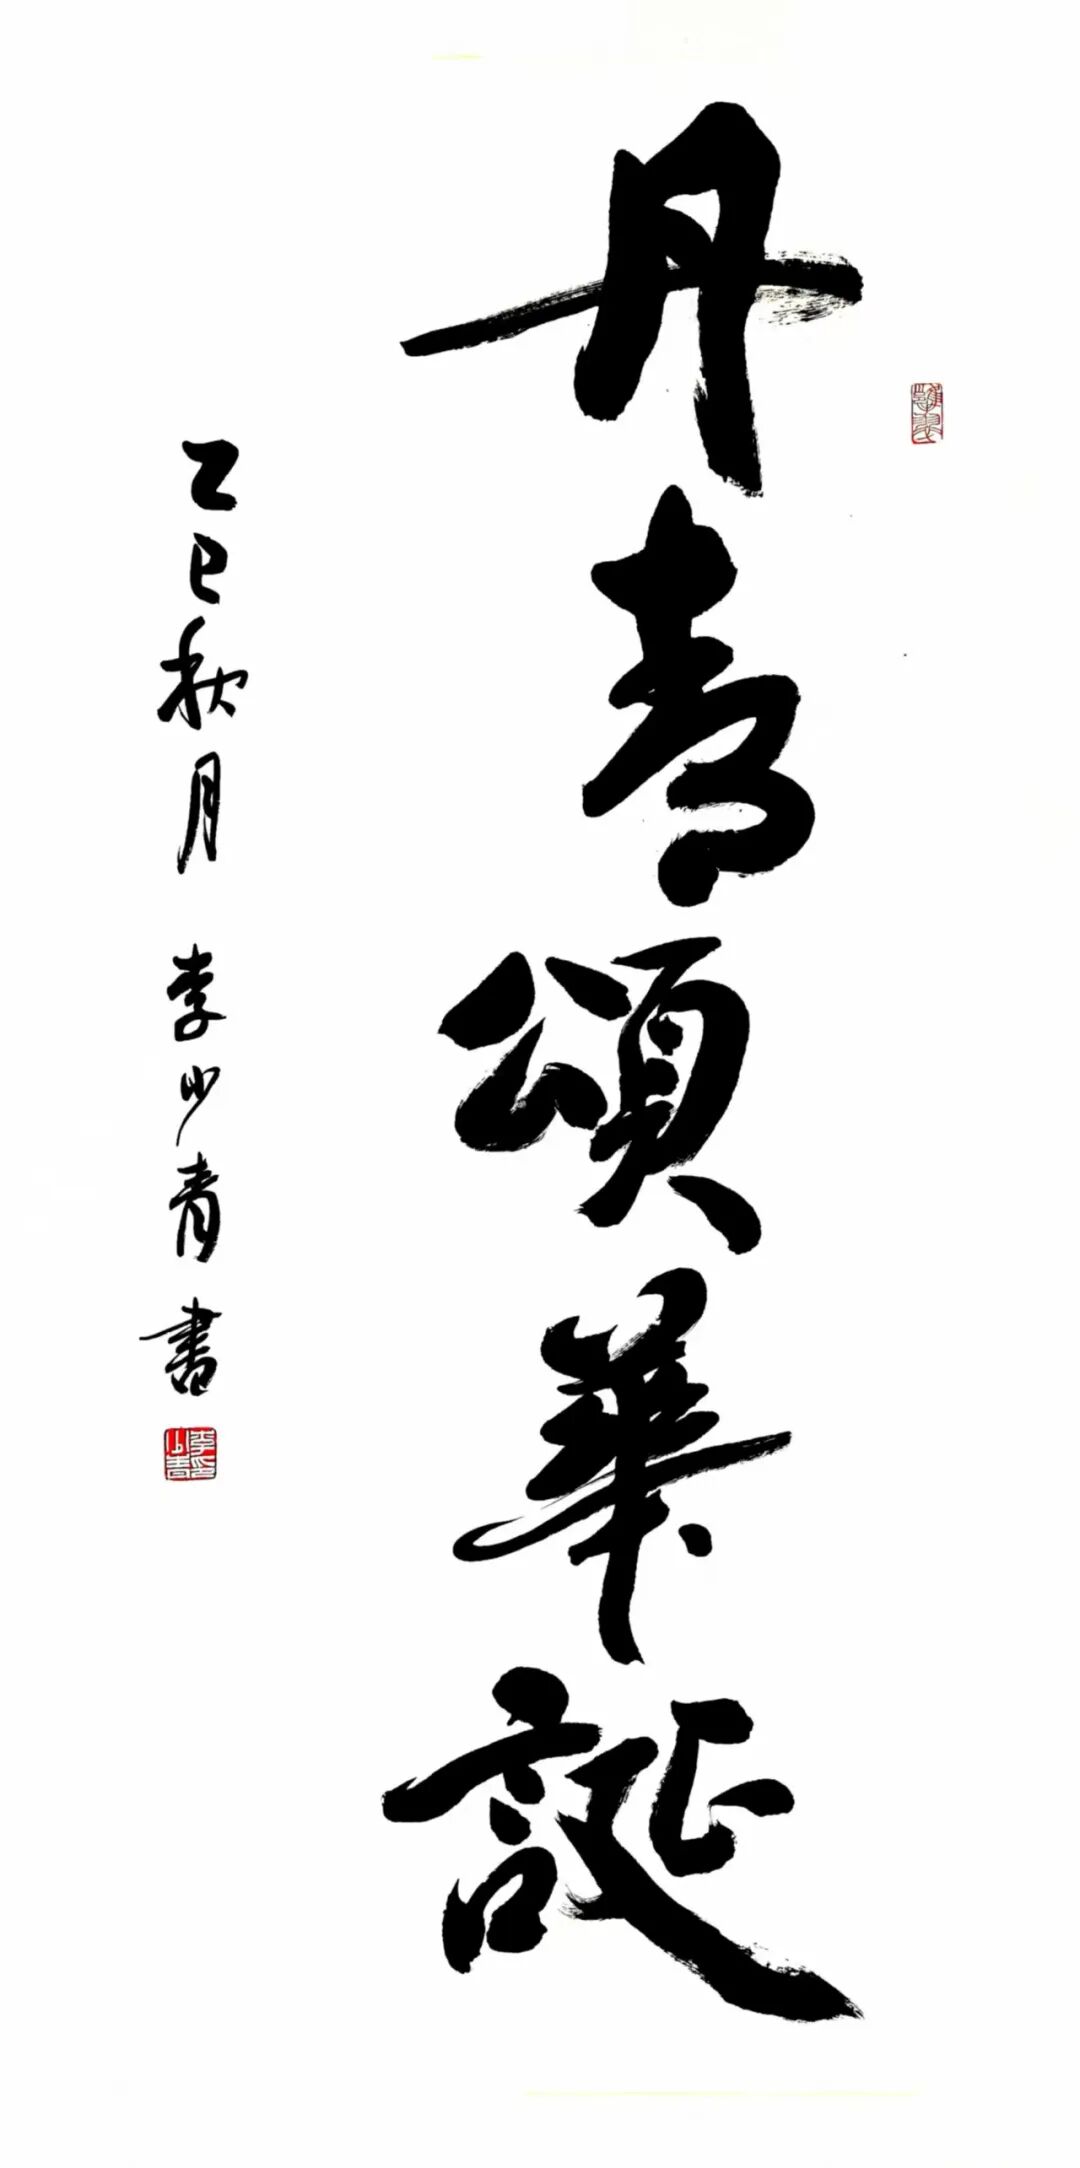 丹青頌華誕
乙巳秋月 李少青書